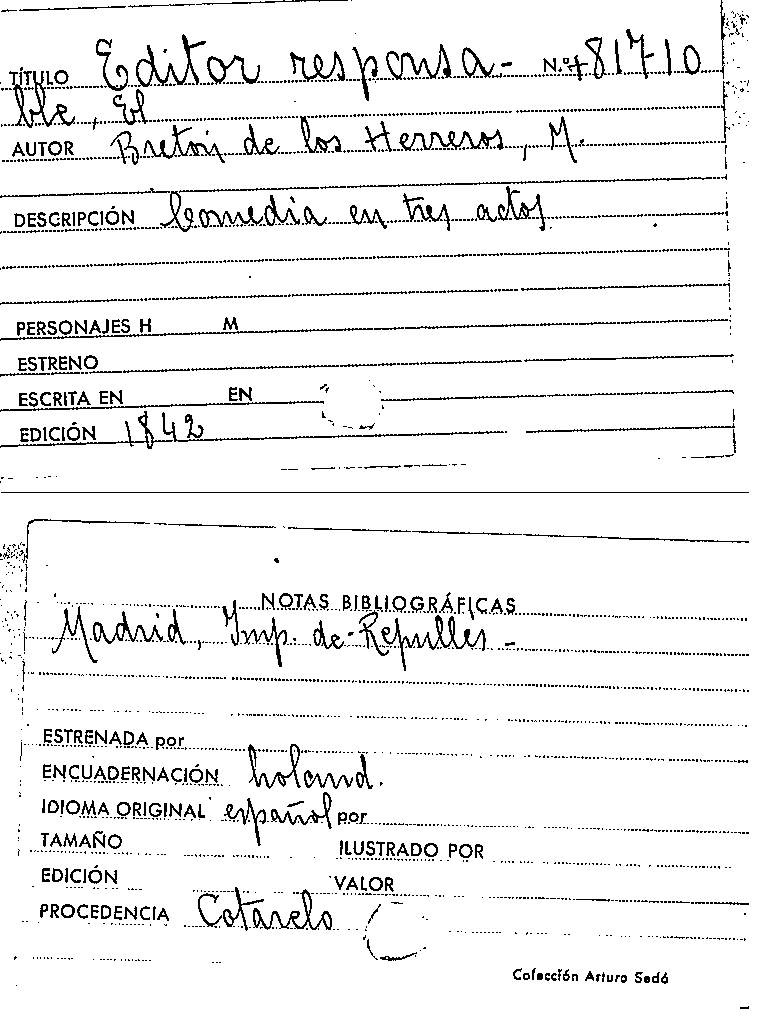 TÍTULO Editor responsa- N.º 81710
ble, El
AUTOR Bretón de los Herreros, M.
DESCRIPCIÓN Comedia en tres actos
PERSONAJES H M
ESTRENO
ESCRITA EN EN
EDICIÓN 1842
NOTAS BIBLIOGRÁFICAS
Madrid, Imp. de Repullés -
ESTRENADA por
ENCUADERNACIÓN holand.
IDIOMA ORIGINAL español por
TAMAÑO ILUSTRADO POR
EDICIÓN VALOR
PROCEDENCIA Cotarelo
Colección Arturo Sedó